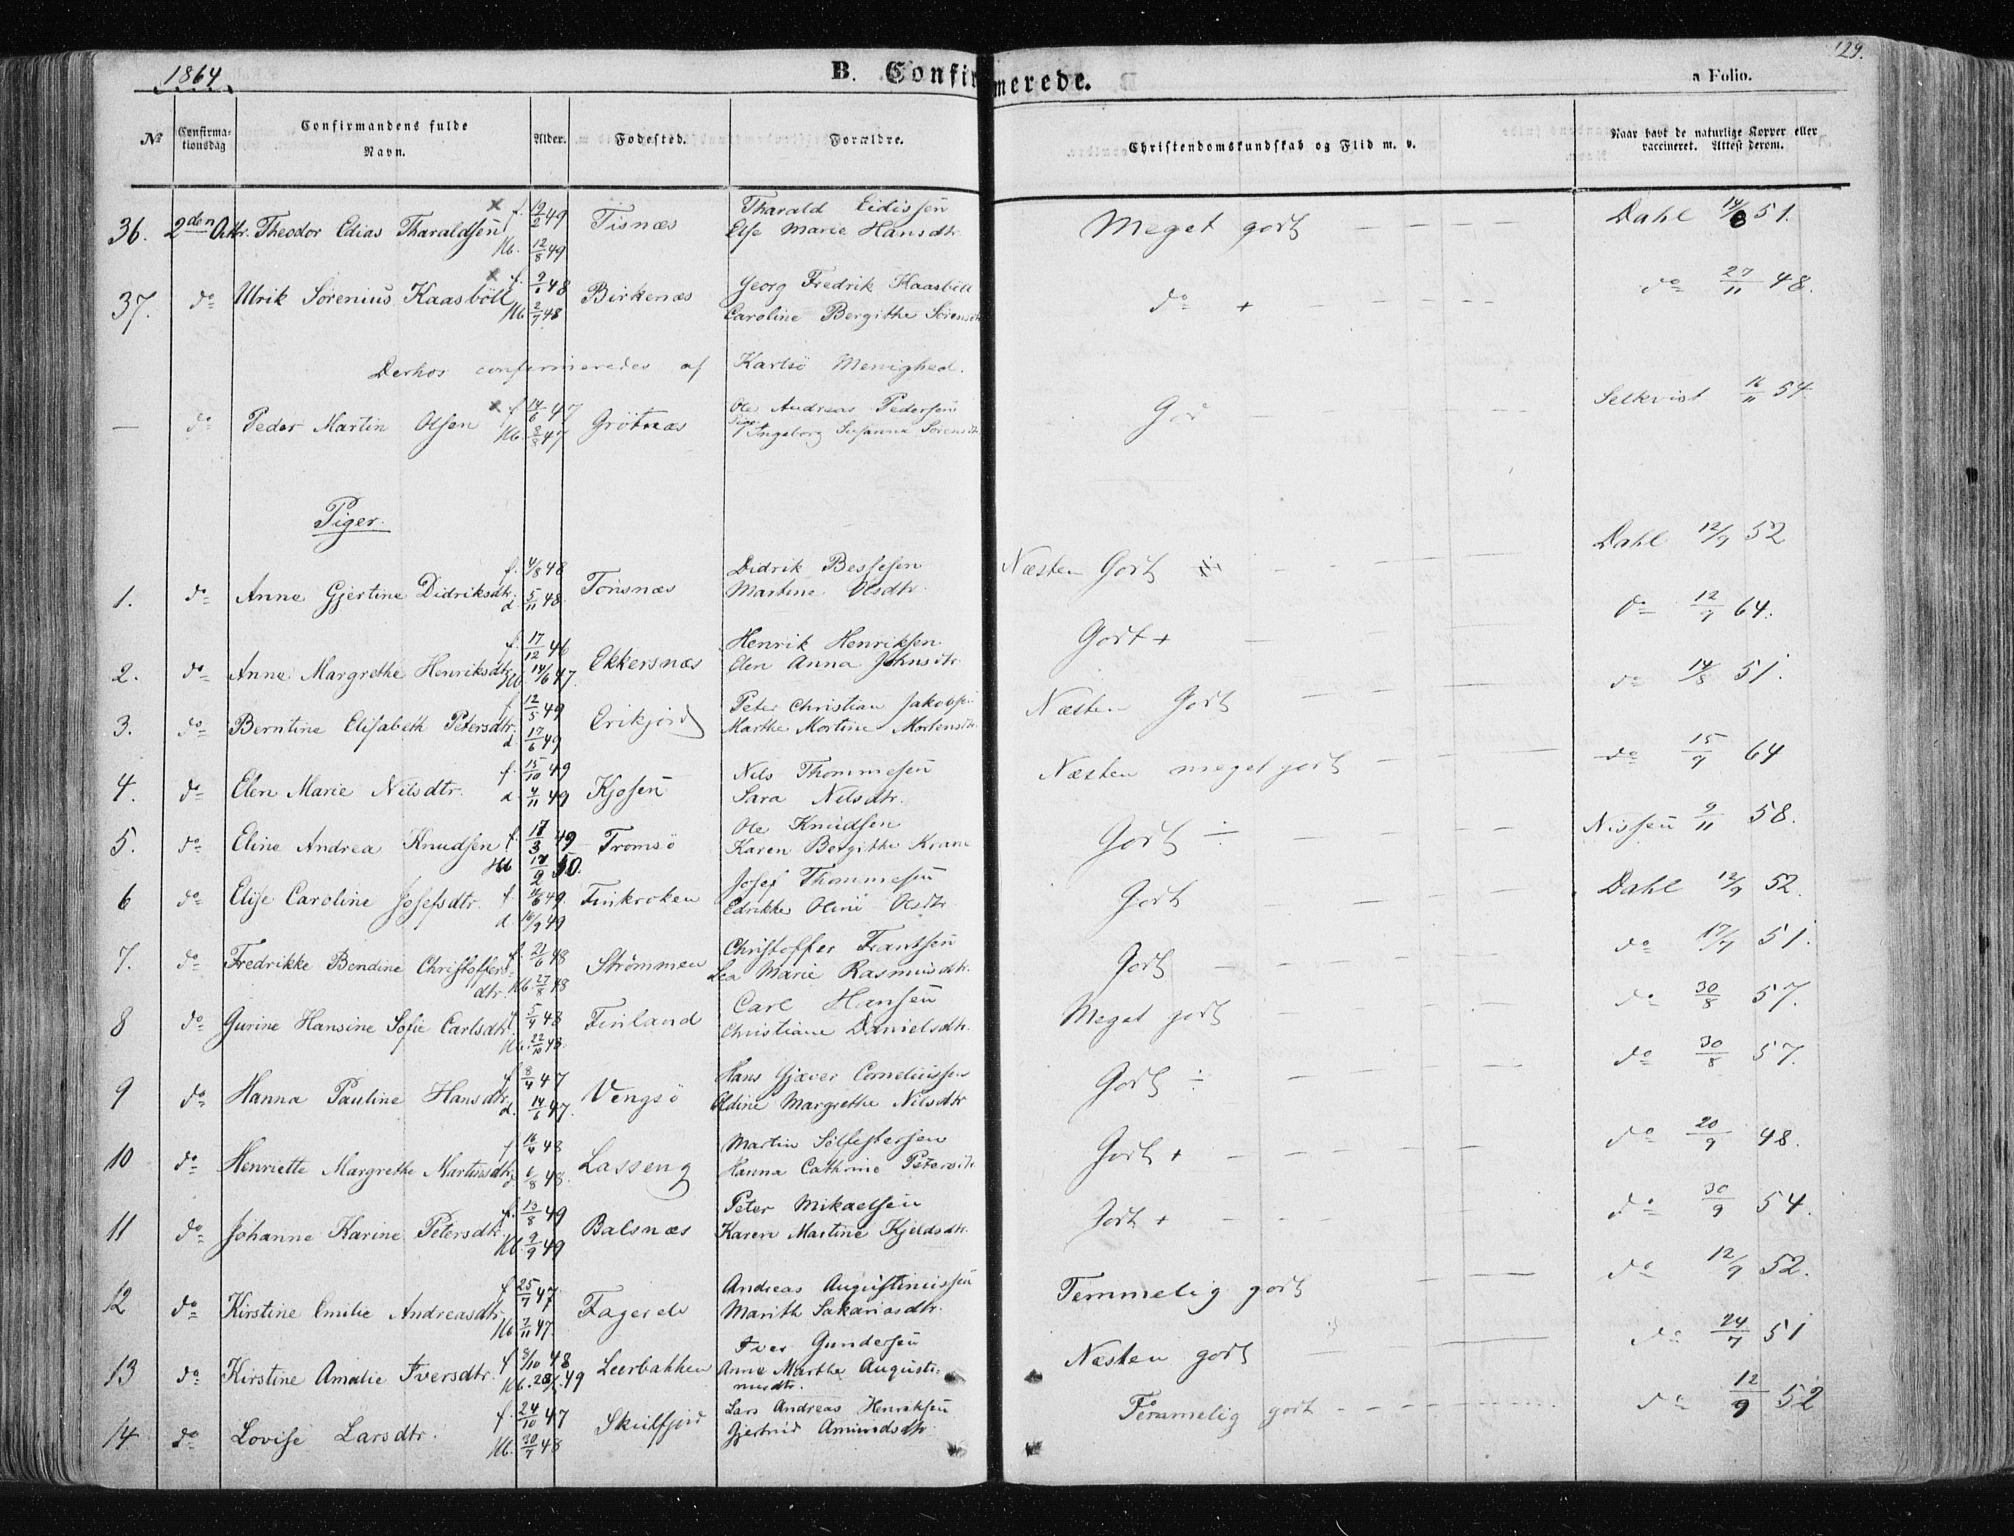 1864.
B. Confirmerede.
129.
a Folio.
№ Confirma-tionsdag Confirmandens fulde Navn. Alder. Fodested. Forældre. Christendomskundskab og Flid m. v. Naar havt de naturlige Kopper eller vaccineret. Attest derom.
36. 2den Octr. Theodor Edias Tharaldsen x f. 19/2 49 Tisnæs Tharald Eidissen Meget godt Dahl 14/8 51.
Hb. 12/8 49 Else Marie Hansdtr.
37. do Ulrik Sörenius Kaasböll x f. 9/1 48 Birkenæs Georg Fredrik Kaasböll do + do 27/11 48.
Hb. 2/7 48 Caroline Bergithe Sörensdtr
Derhos confirmeredes af Karlsö Menighed.
— do Peder Martin Olsen x f. 14/6 47 Grötnæs Ole Andreas Pedersen God Selkvist 16/11 54.
Hb. 8/8 47 Ingeborg Susanna Sörensdtr.
Piger.
1. do Anne Gjertine Didriksdtr. f. 4/8 48 Tönsnæs Didrik Bessesen Næsten Godt Dahl 12/9 52
d. 5/11 48. Martine Olsdtr.
2. do Anne Margrethe Henriksdtr. f. 17/12 46 Ekkersnæs Henrik Henriksen Godt + do 12/9 64.
Hb. 14/6 47. Elen Anna Johnsdtr.
3. do Berntine Elisabeth Petersdtr. f. 12/5 49 Erikjord Peter Christian Jakobsen Næsten Godt do 14/8 51.
d. 17/6 49 Marthe Mortine Mortensdtr.
4. do Elen Marie Nilsdtr. f. 15/10 49 Kjosen Nils Thommesen Næsten meget godt do 15/9 64
d. 4/11 49 Sara Nilsdtr.
5. do Eline Andrea Knudsen f. 17/3 49 Tromsö Ole Knudsen Godt ÷ Nissen 9/11 58.
Hb 17/2 50. Karen Bergithe Krane
6 do Elise Caroline Josefsdtr. f. 11/6 49. Finkroken Josef Thommesen Godt Dahl 12/9 52.
d. 16/9 49 Edrikke Oline Olsdtr.
7. do Fredrikke Bendine Christoffers- f. 21/6 48 Strömmen Christoffer Frantsen Godt do 17/7 51.
dtr. Hb. 27/8 48 Lea Marie Rasmusdtr.
8 do Gurine Hansine Sofie Carlsdtr. f. 5/9 48 Finland Carl Hansen Meget godt do 30/8 57.
Hb. 22/10 48. Christiane Danielsdtr.
9 do Hanna Pauline Hansdtr. f. 8/4 47 Vengsö Hans Gjæver Corneliussen Godt ÷ do 30/8 57.
d. 14/6 47. Oldine Margrethe Nilsdtr
10 do Henriette Margrethe Martinsdtr. f. 16/4 48 Lasseng Martin Sölfestersen Godt + do 20/9 48.
6/8 48. Hanna Cathrine Petersdtr
11 do Johanne Karine Petersdtr. f. 13/8 49 Balsnæs Peter Mikaelsen Godt + do 30/9 54.
Hb. 9/9 49 Karen Martine Kjeldsdtr.
12 do Kirstine Emilie Andreasdtr. f. 25/7 47. Fagerele Andreas Augustinussen Temmelig godt do 12/9 52.
Hb. 7/11 47. Marith Sakariasdtr.
13 do Kirstine Amalie Iversdtr. f. 8/10 48 Leerbakken Iver Gundersen Næsten godt do 24/7 51
Hb. 28/1 49 Anne Marthe Augusti-
nusdtr.
14 do Lovise Larsdtr. f. 24/10 47 Skulfjord Lars Andreas Henriksen Temmelig godt do 12/9 52
Hb. 30/7 48 Gjertrud Amundsdtr